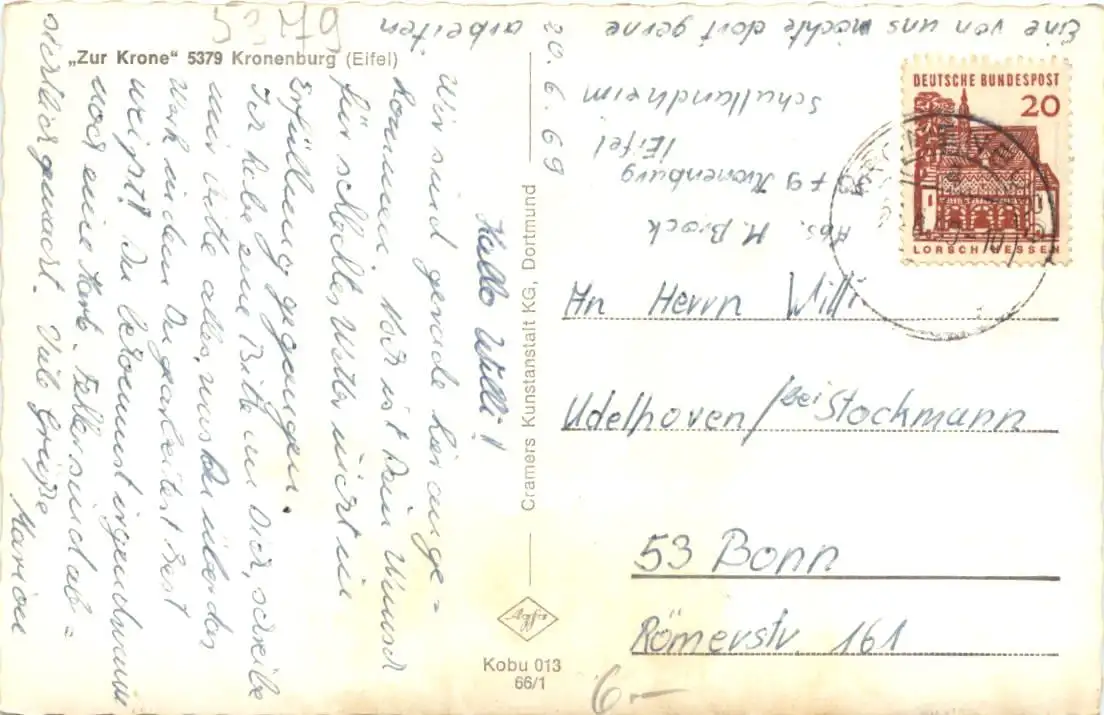 53 79
„Zur Krone“ 5379 Kronenburg (Eifel)
20.6.69
Hallo Willi!
Wir sind gerade hier ange=
kommen. Noch ist Dein Wunsch
für schlechtes Wetter nicht in
Erfüllung gegangen.
Ich habe eine Bitte an Dich, schreibe
mir bitte alles, was Du über das
Werk in dem Du gearbeitet hast
weißt! Du bekommst irgendwann
noch eine Karte. Fehler sind ab=
sichtlich gemacht. Viele Grüße
Marion
Eine von uns möchte dort gerne
arbeiten
Cramers Kunstanstalt KG, Dortmund
Agfa
Kobu 013
66/1
Abs. M. Brock
5379 Kronenburg
/Eifel
Schullandheim
DEUTSCHE BUNDESPOST
20
LORSCH HESSEN
An Herrn Willi
Udelhoven/bei Stockmann
53 Bonn
Römerstr. 161
6.—